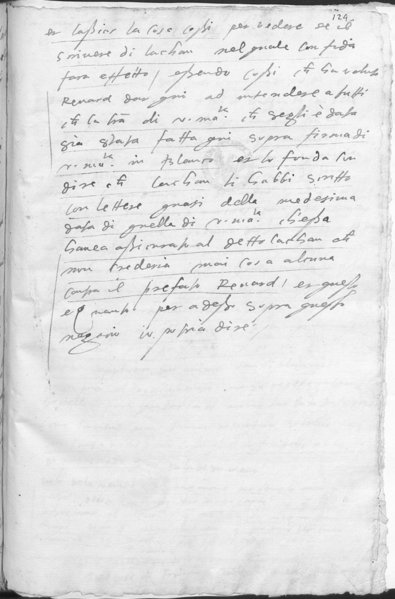 124
et lassar la cosa cossi per vedere se il
scrivere di lachau nel quale confida
fara effetto / essendo cossi ch ha voluto
Renard dar qui ad intendere a tutti
ch la lra di v. ma.ta ch segli è data
gia stata fatta qui sopra firma di
v. ma.ta in blanco et lo fonda su
dire ch lachau li habbi scritto
con lettere quasi della medesima
data di quella di v. ma.ta ch essa
havea assicurato al detto lachau ch
non crederia mai cosa alcuna
contra il prefato Renard / et questo
e quanto per adesso sopra questo
negotio io potria dire /